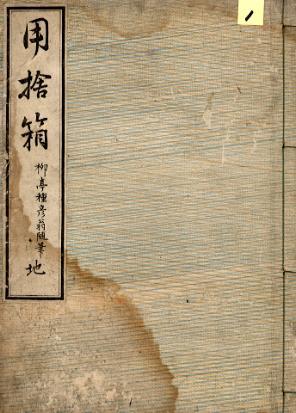 用捨箱
柳亭種彦翁随筆
地
1